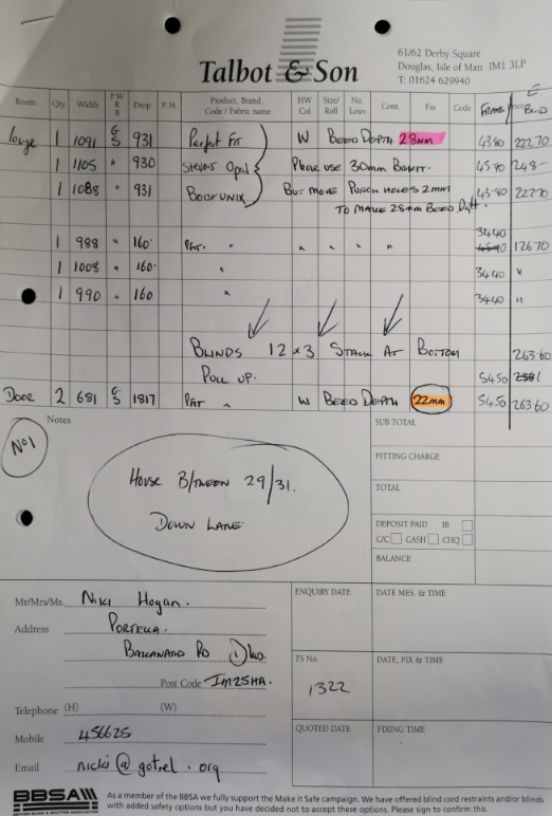 Talbot & Son
61/62 Derby Square
Douglas, Isle of Man IM1 3LP
T: 01624 629940
Room Qty Width F W R B Drop P.H. Product, Brand, Code / Fabric name HW Col Size/ Roll No. Louv Cont. Fix Code FRAME £ BLIND
1 1091 931 Perfect Fit W BEED DEPTH 28mm 43.80 222.70
1 1105 " 930 STEVENS Opal Please use 30mm 45.90 248-
1 1088 " 931 43.80 222.70
BUT MOVE PUNCH HOLES 2mm
TO MAKE 28mm BEED
34.40
1 988 " 160 " " " " " 126.70
1 1008 " 160 " 34.40 "
1 990 " 160 " 34.40 "
BLINDS 12 x 3 STACK AT BOTTOM 263.60
PULL UP. 54.50
DOOR 2 681 1817 " W BEED DEPTH 22mm 54.50 263.60
Notes
No 1
HOUSE B/TWEEN 29/31.
DOWN LANE.
SUB TOTAL
FITTING CHARGE
TOTAL
DEPOSIT PAID IB
C/C CASH CHQ
BALANCE
Mr/Mrs/Ms. Niki Hogan.
Address
Post Code IM25HA.
Telephone (H) (W)
Mobile 456625
Email
ENQUIRY DATE
DATE MES. & TIME
TS No.
1322
DATE, FIX & TIME
QUOTED DATE
FIXING TIME
BBSA
As a member of the BBSA we fully support the Make it Safe campaign. We have offered blind cord restraints and/or blinds
with added safety options but you have decided not to accept these options. Please sign to confirm this.